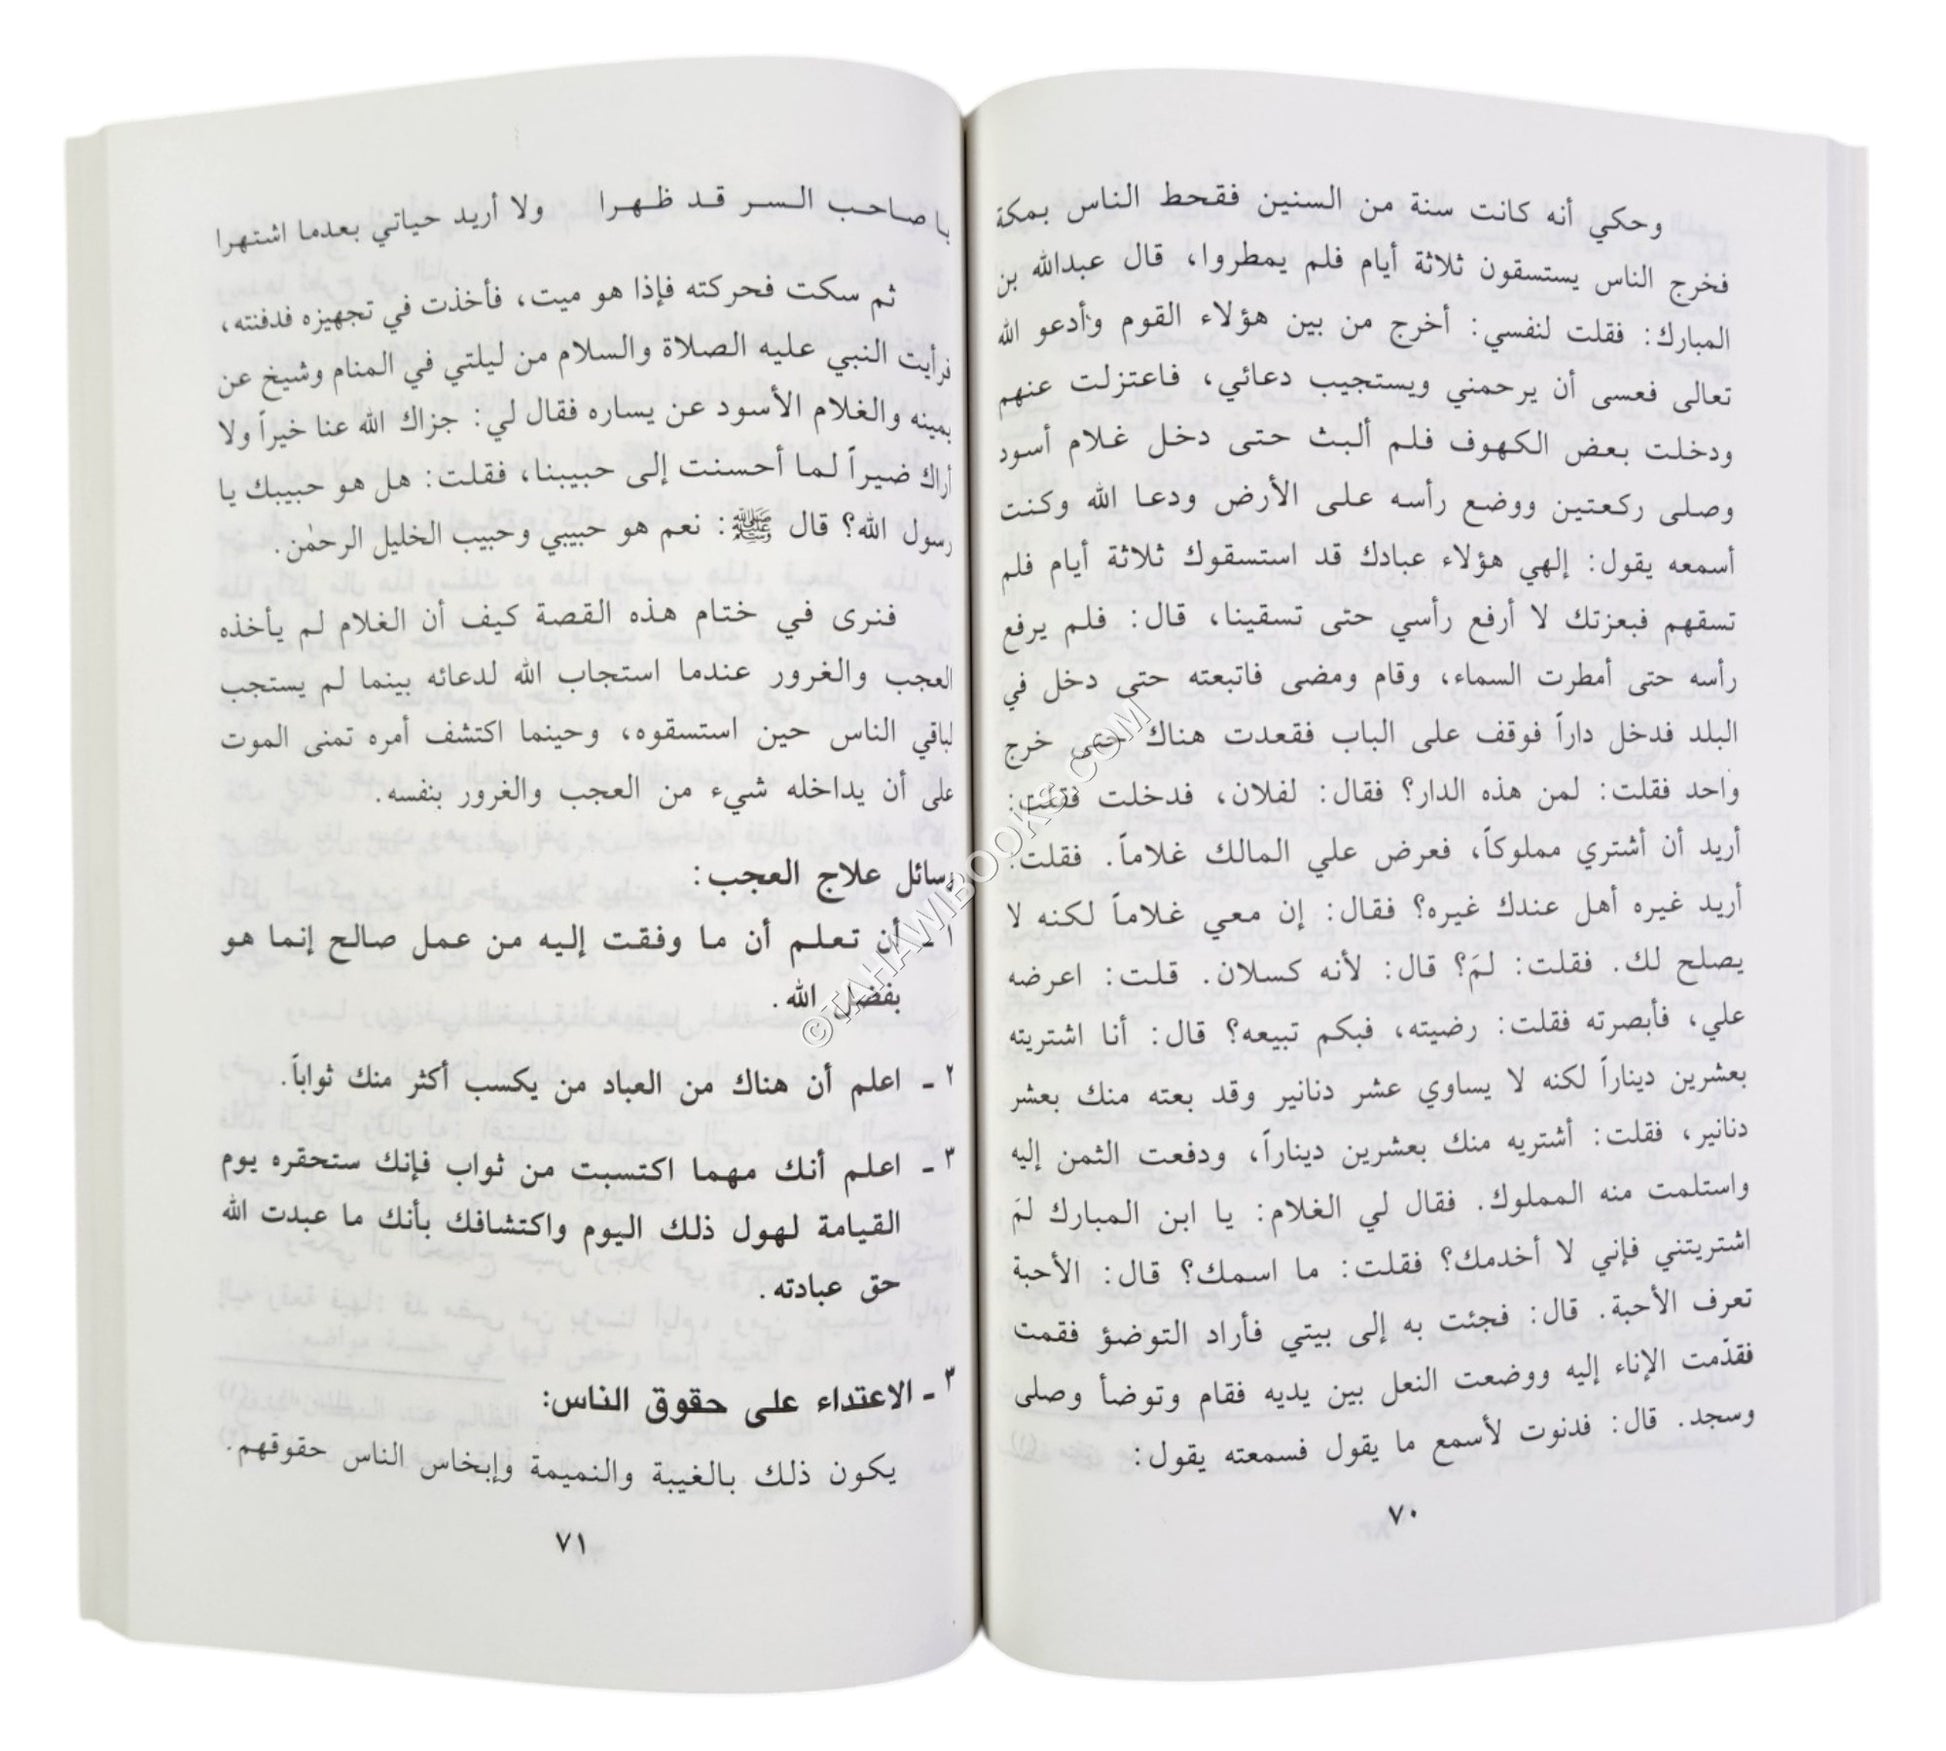 وحكي أنه كانت سنة من السنين فقحط الناس بمكة
فخرج الناس يستسقون ثلاثة أيام فلم يمطروا، قال عبدالله بن
المبارك: فقلت لنفسي: أخرج من بين هؤلاء القوم وأدعو الله
تعالى فعسى أن يرحمني ويستجيب دعائي، فاعتزلت عنهم
ودخلت بعض الكهوف فلم ألبث حتى دخل غلام أسود
وصلى ركعتين ووضع رأسه على الأرض ودعا الله وكنت
أسمعه يقول: إلهي هؤلاء عبادك قد استسقوك ثلاثة أيام فلم
تسقهم فبعزتك لا أرفع رأسي حتى تسقينا، قال: فلم يرفع
رأسه حتى أمطرت السماء، وقام ومضى فاتبعته حتى دخل في
البلد فدخل داراً فوقف على الباب فقعدت هناك حتى خرج
واحد فقلت: لمن هذه الدار؟ فقال: لفلان، فدخلت فقلت:
أريد أن أشتري مملوكاً، فعرض علي المالك غلاماً. فقلت:
أريد غيره أهل عندك غيره؟ فقال: إن معي غلاماً لكنه لا
يصلح لك. فقلت: لمَ؟ قال: لأنه كسلان. قلت: اعرضه
علي، فأبصرته فقلت: رضيته، فبكم تبيعه؟ قال: أنا اشتريته
بعشرين ديناراً لكنه لا يساوي عشر دنانير وقد بعته منك بعشر
دنانير، فقلت: أشتريه منك بعشرين ديناراً، ودفعت الثمن إليه
واستلمت منه المملوك. فقال لي الغلام: يا ابن المبارك لمَ
اشتريتني فإني لا أخدمك؟ فقلت: ما اسمك؟ قال: الأحبة
تعرف الأحبة. قال: فجئت به إلى بيتي فأراد التوضؤ فقمت
فقدّمت الإناء إليه ووضعت النعل بين يديه فقام وتوضأ وصلى
وسجد. قال: فدنوت لأسمع ما يقول فسمعته يقول:
٧٠
يا صاحب السر قد ظهرا ولا أريد حياتي بعدما اشتهرا
ثم سكت فحركته فإذا هو ميت، فأخذت في تجهيزه فدفنته،
فرأيت النبي عليه الصلاة والسلام من ليلتي في المنام وشيخ عن
يمينه والغلام الأسود عن يساره فقال لي: جزاك الله عنا خيراً ولا
أراك ضيراً لما أحسنت إلى حبيبنا، فقلت: هل هو حبيبك يا
رسول الله؟ قال ﷺ: نعم هو حبيبي وحبيب الخليل الرحمٰن.
فنرى في ختام هذه القصة كيف أن الغلام لم يأخذه
العجب والغرور عندما استجاب الله لدعائه بينما لم يستجب
لباقي الناس حين استسقوه، وحينما اكتشف أمره تمنى الموت
على أن يداخله شيء من العجب والغرور بنفسه.
رسائل علاج العجب:
١ - أن تعلم أن ما وفقت إليه من عمل صالح إنما هو
بفضل الله.
٢ - اعلم أن هناك من العباد من يكسب أكثر منك ثواباً.
٣ - اعلم أنك مهما اكتسبت من ثواب فإنك ستحقره يوم
القيامة لهول ذلك اليوم واكتشافك بأنك ما عبدت الله
حق عبادته.
٣ - الاعتداء على حقوق الناس:
يكون ذلك بالغيبة والنميمة وإبخاس الناس حقوقهم.
٧١
©TAHAWIBOOKS.COM